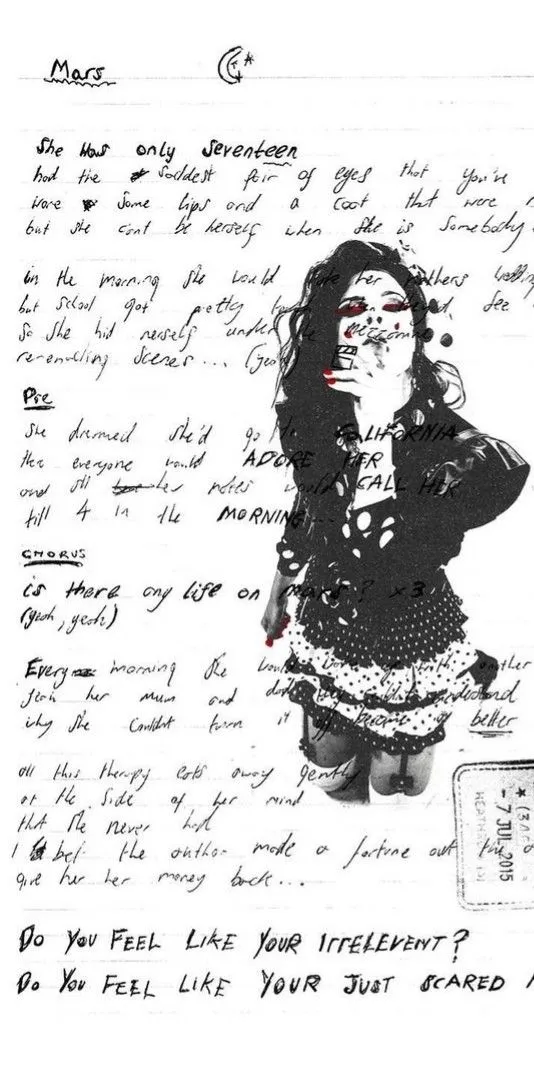 Mars
She was only seventeen
had the saddest pair of eyes that you've
wore some lips and a coat that were
but she cant be herself when she is somebody
in the morning she would her mothers
but school got pretty
So she hid herself under the mezzanine
re-enacting Scenes... (yeah)
Pre
She dreamed she'd go to CALIFORNIA
there everyone would ADORE HER
and all her mates would CALL HER
till 4 in the MORNING...
CHORUS
is there any life on mars? x3
(yeah, yeah)
Every morning she would up with another
yeah her mum and dad they couldn't understand
why she couldnt turn it off become of better
all this therapy eats away gently
at the side of her mind
that she never had
I bet the author made a fortune out the
give her her money back...
DO YOU FEEL LIKE YOUR IRRELEVENT?
DO YOU FEEL LIKE YOUR JUST SCARED
- 7 JUL 2015
HEATHROW (3)